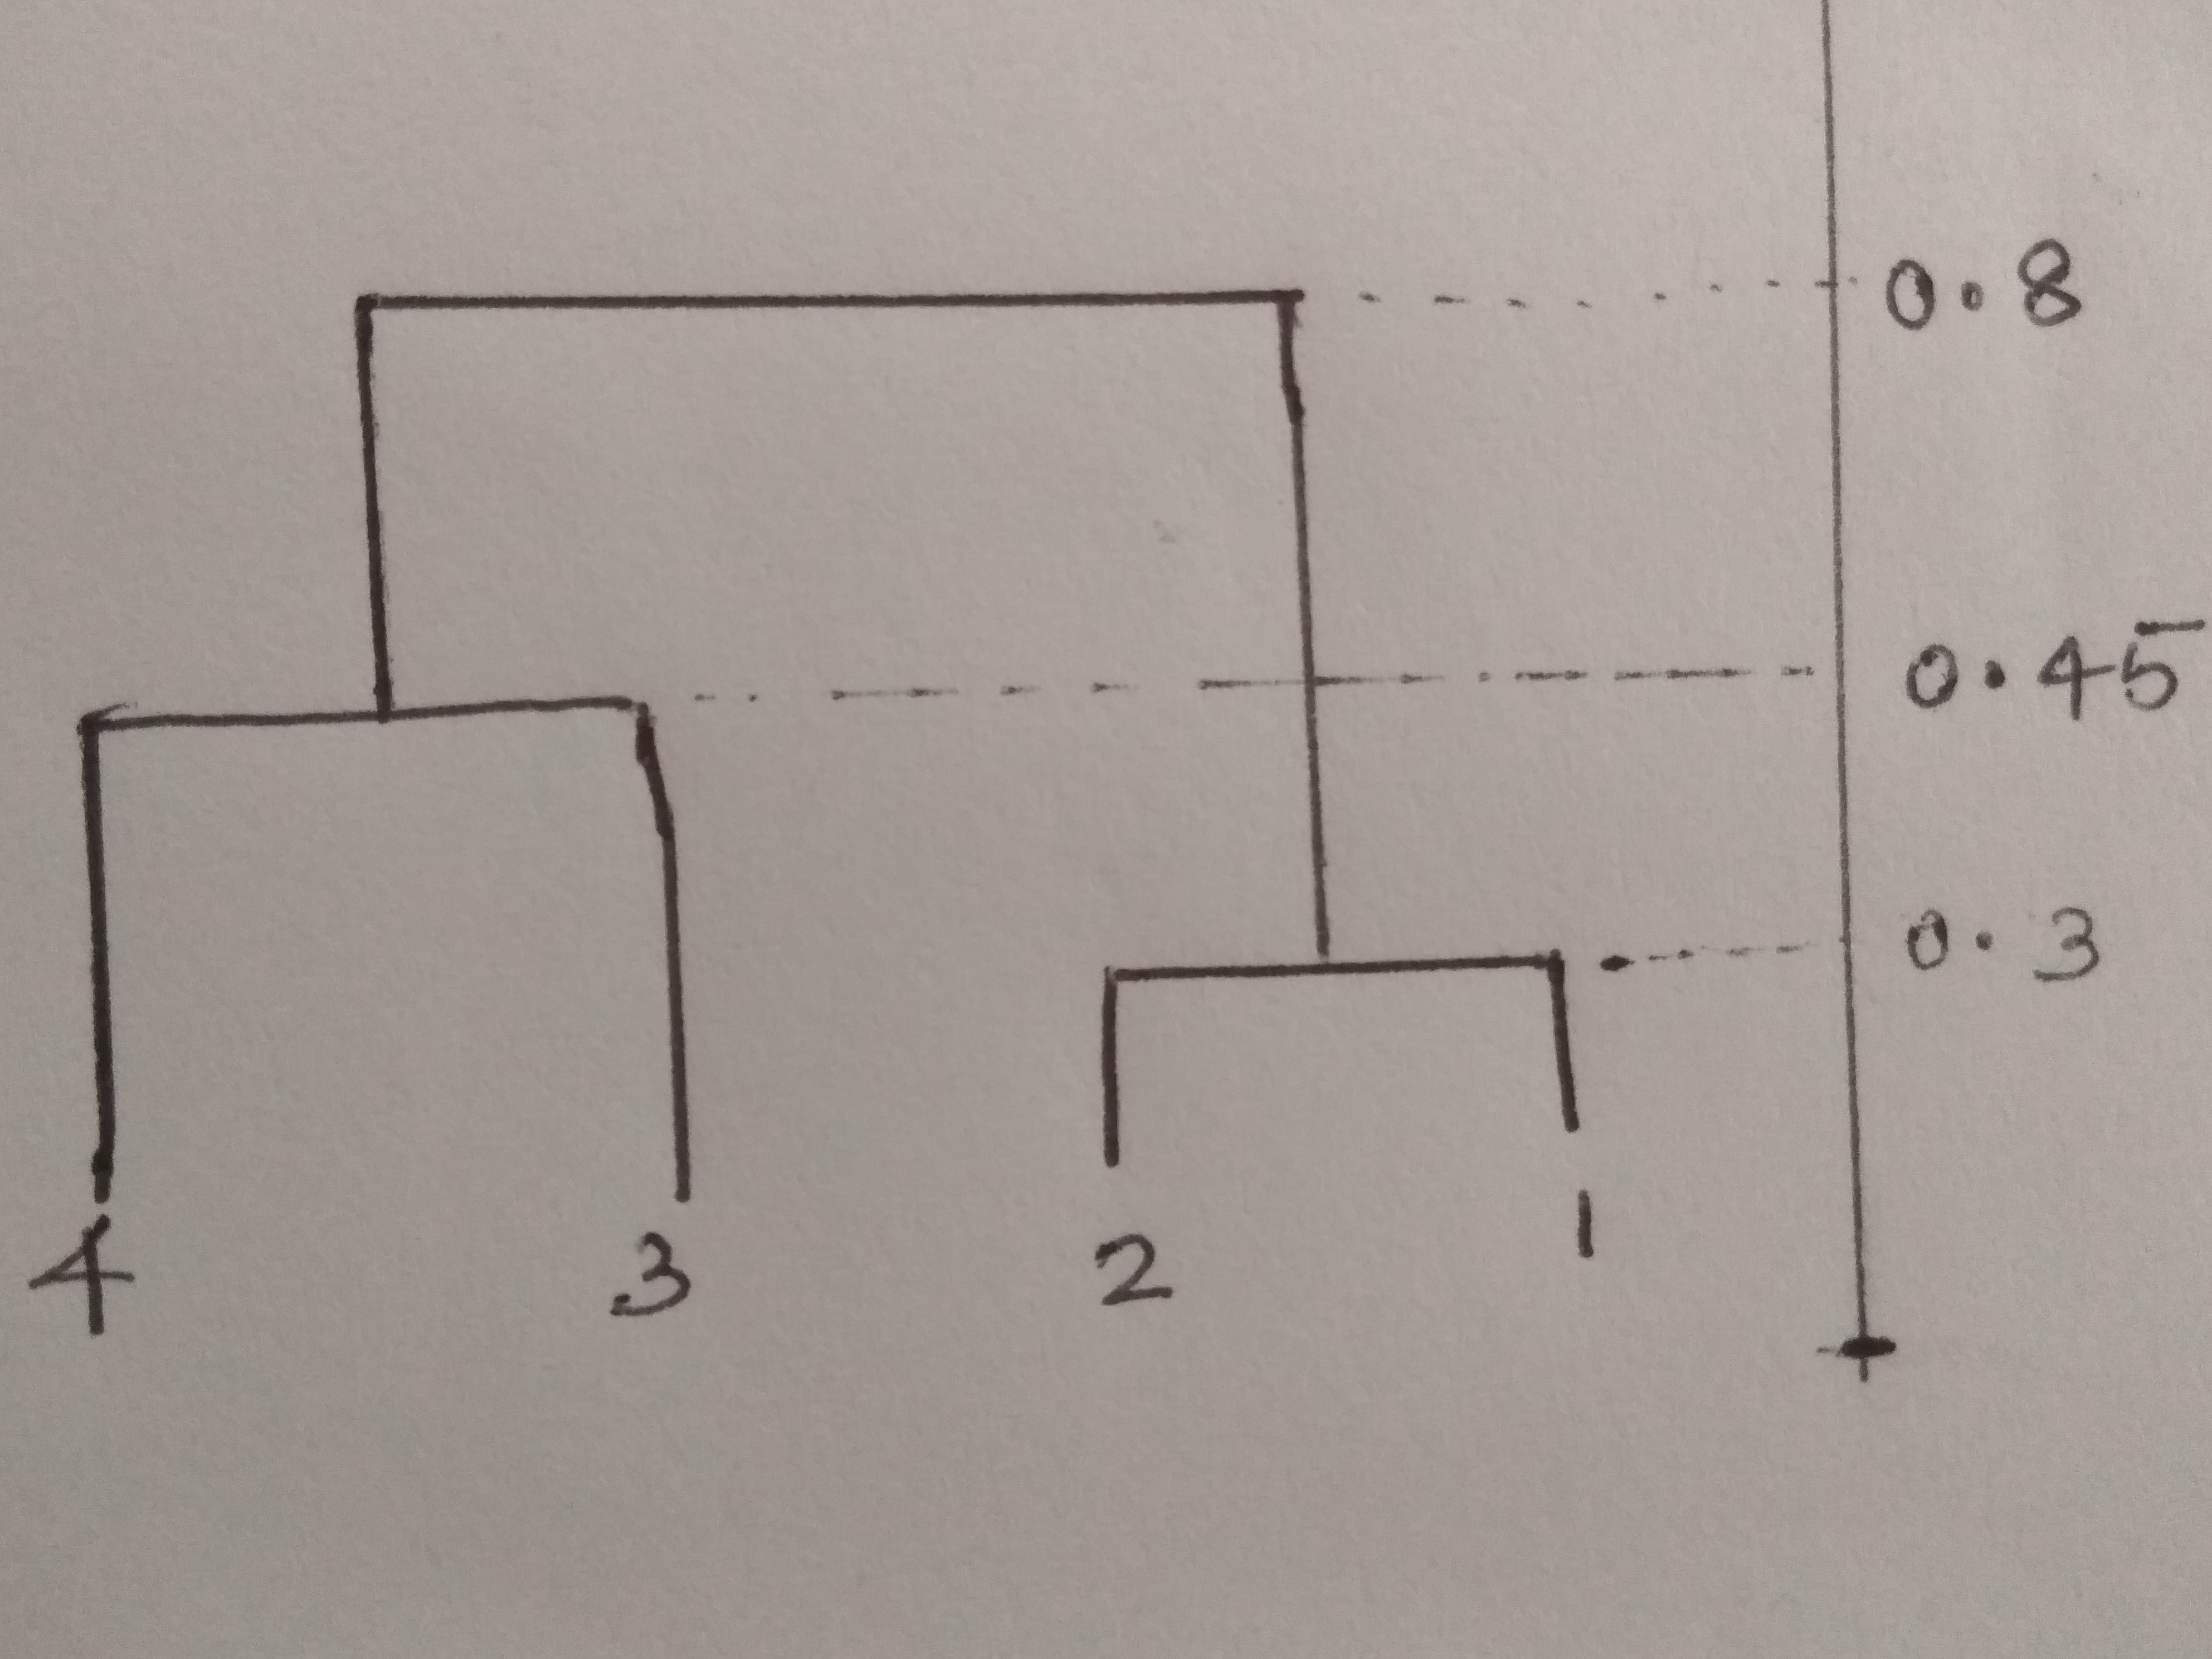 0.8
0.45
0.3
4 3 2 1